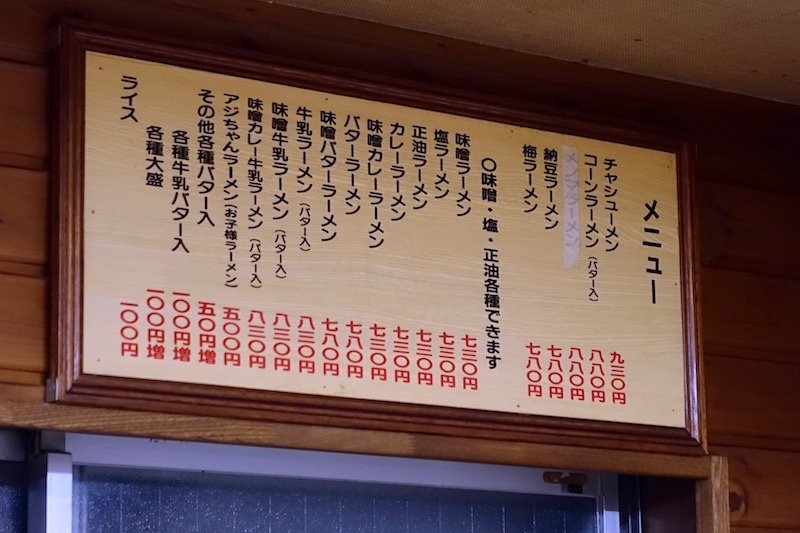 メニュー
チャシューメン 九三〇円
コーンラーメン(バター入) 八八〇円
メンマラーメン 八八〇円
納豆ラーメン 七八〇円
梅ラーメン 七八〇円
〇味噌・塩・正油各種できます
味噌ラーメン 七三〇円
塩ラーメン 七三〇円
正油ラーメン 七三〇円
カレーラーメン 七三〇円
味噌カレーラーメン 七三〇円
バターラーメン 七八〇円
味噌バターラーメン 七八〇円
牛乳ラーメン(バター入) 八三〇円
味噌牛乳ラーメン(バター入) 八三〇円
味噌カレー牛乳ラーメン(バター入) 八三〇円
アジちゃんラーメン(お子様ラーメン) 五〇〇円
その他各種バター入 五〇円増
各種牛乳バター入 一〇〇円増
各種大盛 一〇〇円増
ライス 一〇〇円